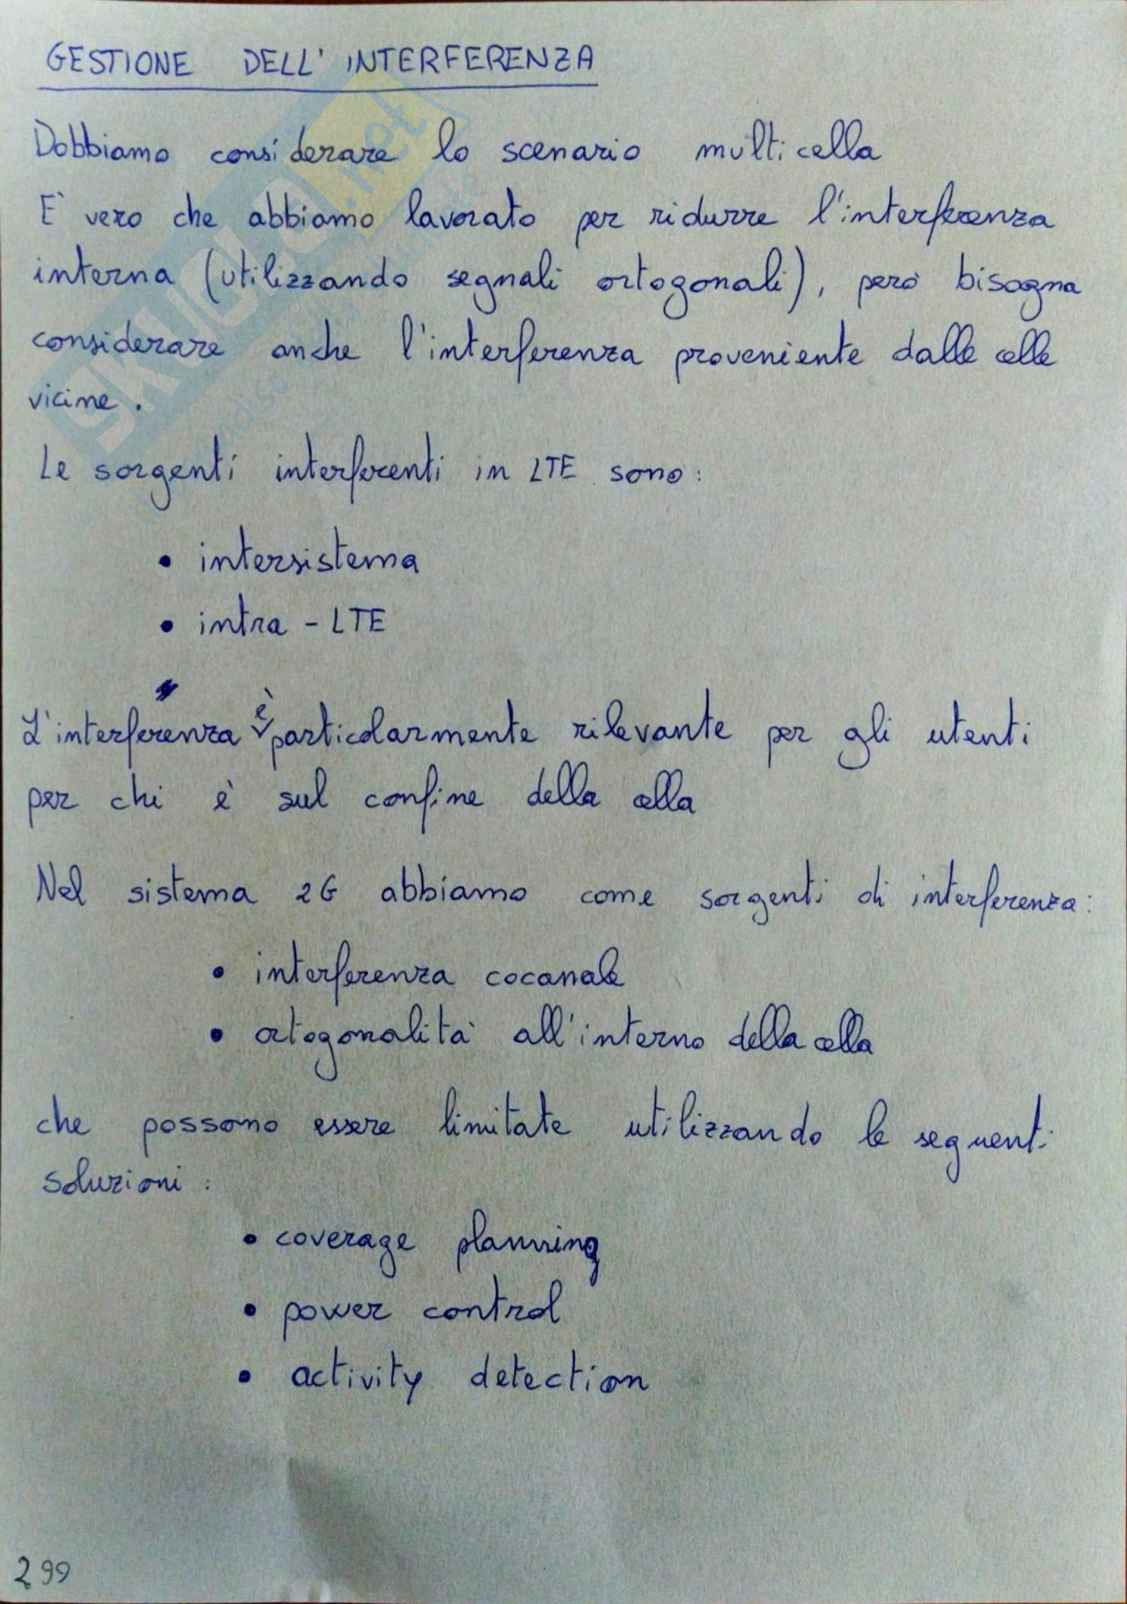 GESTIONE DELL'INTERFERENZA
Dobbiamo considerare lo scenario multicella
E' vero che abbiamo lavorato per ridurre l'interferenza
interna (utilizzando segnali ortogonali), però bisogna
considerare anche l'interferenza proveniente dalle celle
vicine.
Le sorgenti interferenti in LTE sono:
• intersistema
• intra-LTE
L'interferenza è particolarmente rilevante per gli utenti
per chi è sul confine della cella
Nel sistema 2G abbiamo come sorgenti di interferenza:
• interferenza cocanale
• ortogonalità all'interno della cella
che possono essere limitate utilizzando le seguenti
soluzioni:
• coverage planning
• power control
• activity detection
299
SKUOLA.net